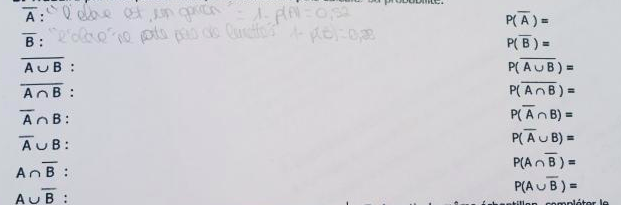 probabilité.
A̅ : "l'élève est un garçon" = 1- p(A) = 0,52 P(A̅) =
B̅ : "l'élève" ne porte pas de lunettes 1- P(B̅) =
A∪B̅ : P(A∪B̅) =
A∩B̅ : P(A∩B̅) =
A̅ ∩ B : P(A̅ ∩ B) =
A̅ ∪ B : P(A̅ ∪ B) =
A ∩ B̅ : P(A ∩ B̅) =
A ∪ B̅ : P(A ∪ B̅) =
même échantillon, compléter le